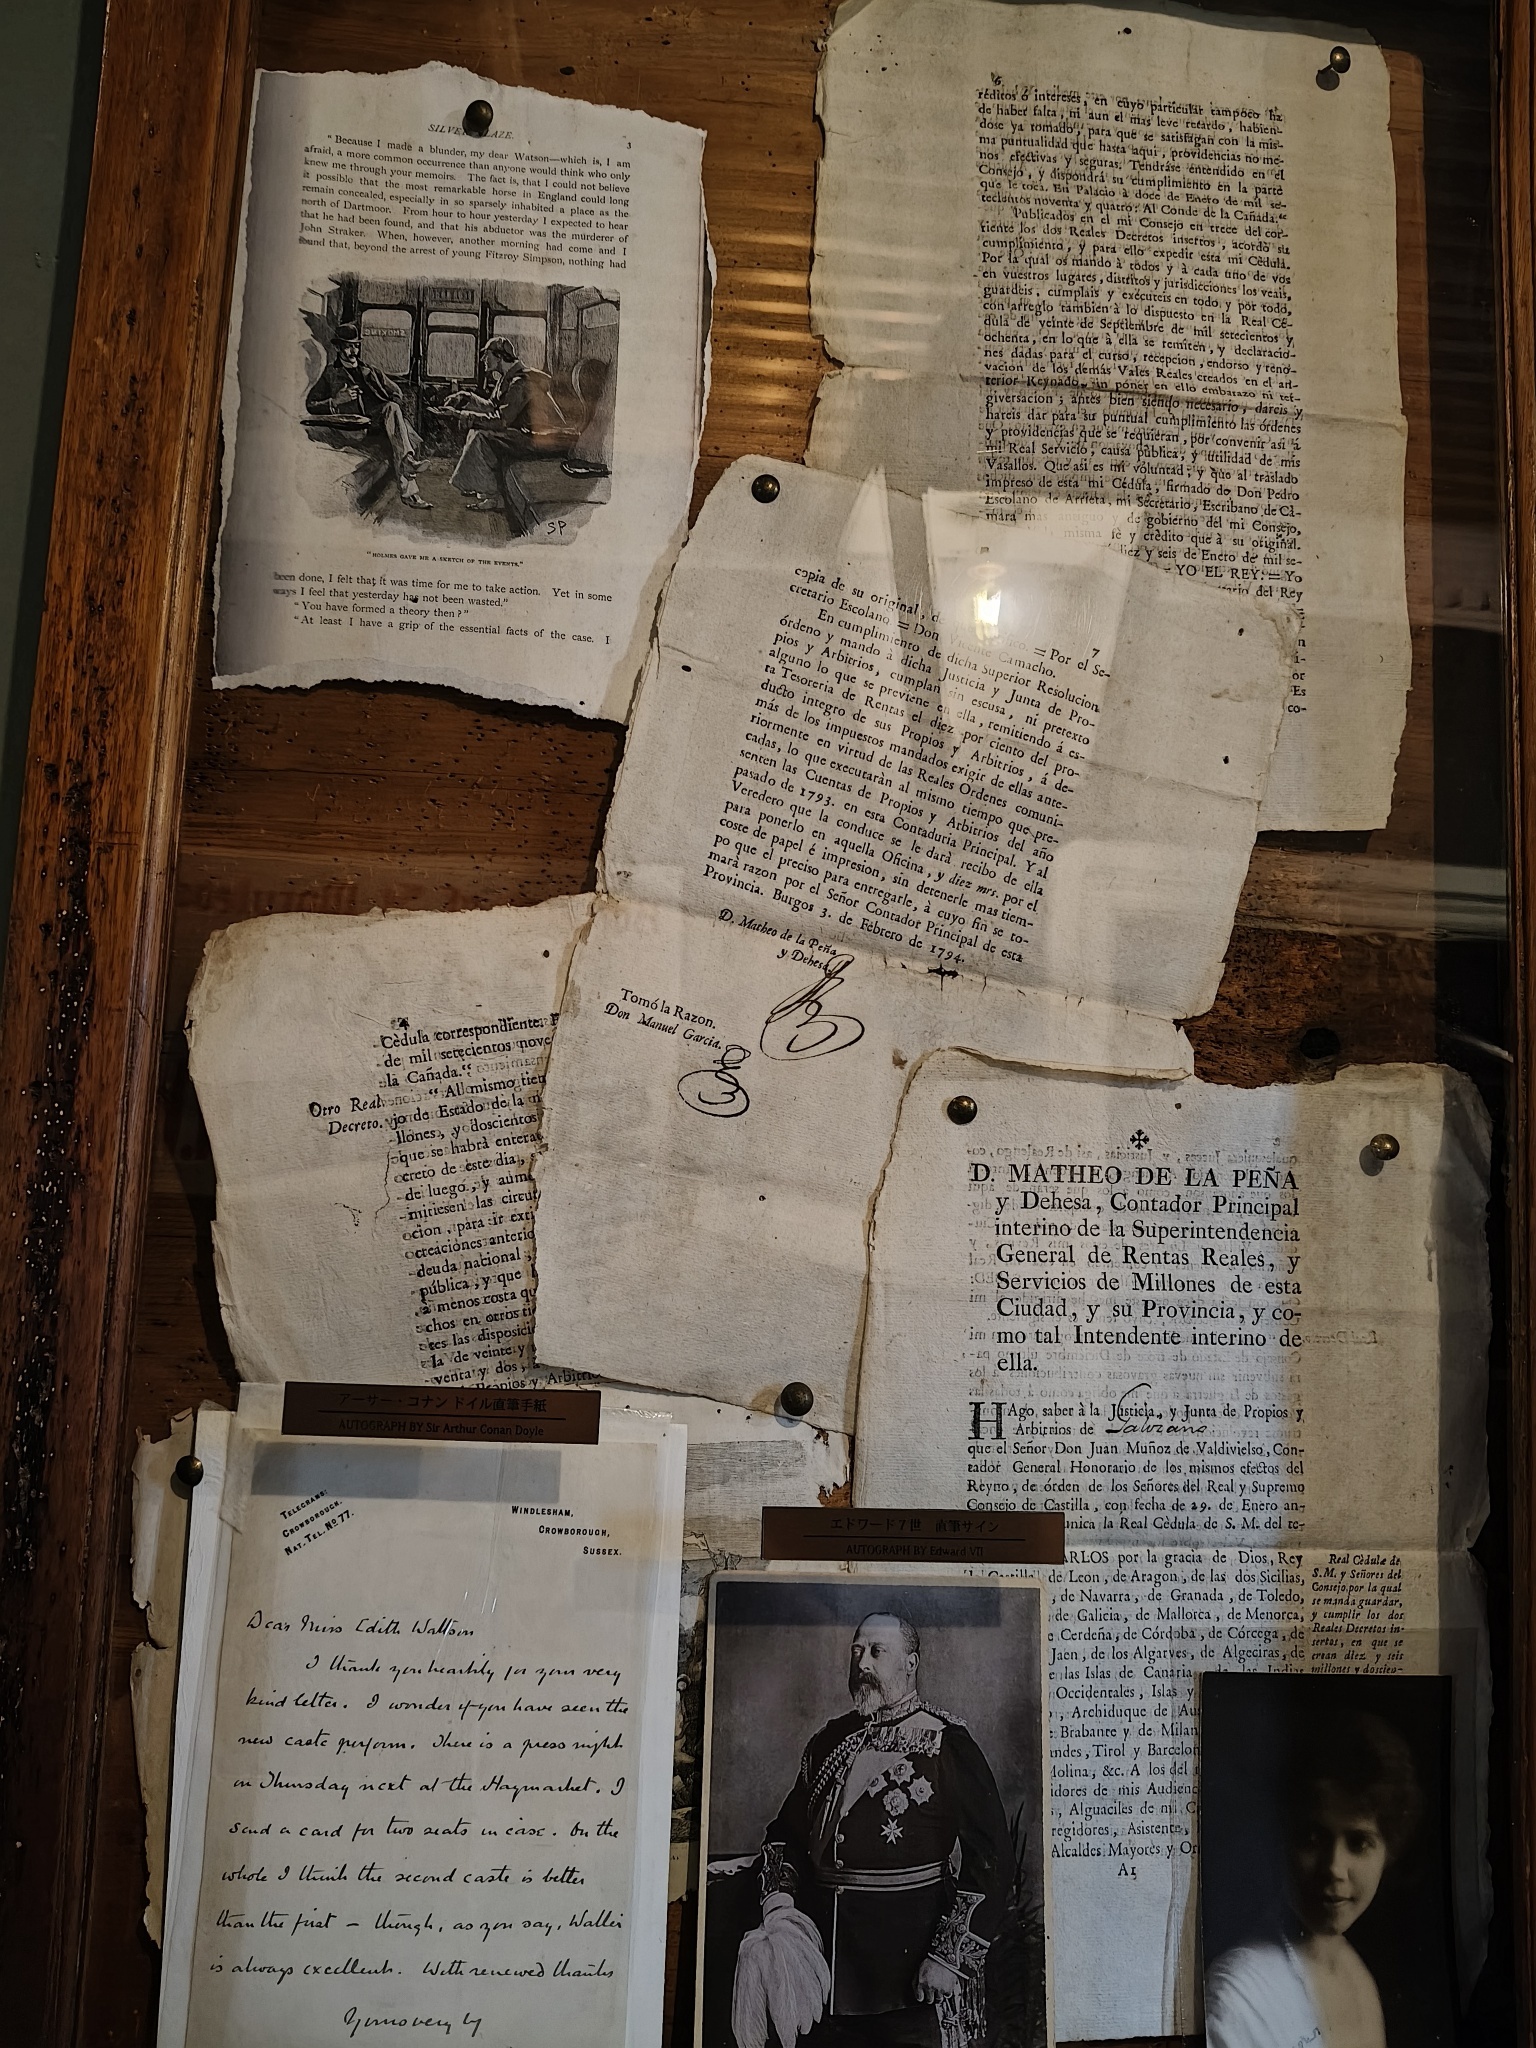 SILVER BLAZE. 3
"Because I made a blunder, my dear Watson—which is, I am
afraid, a more common occurrence than anyone would think who only
knew me through your memoirs. The fact is, that I could not believe
it possible that the most remarkable horse in England could long
remain concealed, especially in so sparsely inhabited a place as the
north of Dartmoor. From hour to hour yesterday I expected to hear
that he had been found, and that his abductor was the murderer of
John Straker. When, however, another morning had come and I
found that, beyond the arrest of young Fitzroy Simpson, nothing had
SMOKING
SP
"HOLMES GAVE ME A SKETCH OF THE EVENTS."
been done, I felt that it was time for me to take action. Yet in some
ways I feel that yesterday has not been wasted."
"You have formed a theory then?"
"At least I have a grip of the essential facts of the case. I
6
réditos ó intereses, en cuyo particular tampoco ha
de haber falta, ni aun el mas leve retardo, habien-
dose ya tomado, para que se satisfagan con la mis-
ma puntualidad que hasta aqui, providencias no me-
nos efectivas y seguras. Tendráse entendido en el
Consejo, y dispondrá su cumplimiento en la parte
que le toca. En Palacio à doce de Enero de mil se-
tecientos noventa y quatro: Al Conde de la Cañada."
Publicados en el mi Consejo en trece del cor-
riente los dos Reales Decretos insertos, acordó su
cumplimiento, y para ello expedir esta mi Cédula.
Por la qual os mando à todos y à cada uno de vos
en vuestros lugares, distritos y jurisdicciones los veais,
guardeis, cumplais y executeis en todo, y por todo,
con arreglo tambien à lo dispuesto en la Real Cé-
dula de veinte de Septiembre de mil setecientos y
ochenta, en lo que à ella se remiten, y declaracio-
nes dadas para el curso, recepcion, endorso y reno-
vacion de los demás Vales Reales creados en el an-
terior Reynado, sin poner en ello embarazo ni ter-
giversacion; antes bien siendo necesario, dareis y
hareis dar para su puntual cumplimiento las órdenes
y providencias que se requieran, por convenir asi á
mi Real Servicio, causa pública, y utilidad de mis
Vasallos. Que asi es mi voluntad; y que al traslado
impreso de esta mi Cédula, firmado de Don Pedro
Escolano de Arrieta, mi Secretario, Escribano de Cá-
mara mas antiguo y de gobierno del mi Consejo,
misma fé y crédito que à su original.
diez y seis de Enero de mil se-
YO EL REY: = Yo
del Rey
7
copia de su original, d
cretario Escolano = Don Camacho. = Por el Se-
En cumplimiento de dicha Superior Resolucion
órdeno y mando à dicha Justicia y Junta de Pro-
pios y Arbitrios, cumplan sin escusa, ni pretexto
alguno lo que se previene en ella, remitiendo á es-
ta Tesoreria de Rentas el diez por ciento del pro-
ducto integro de sus Propios y Arbitrios, á de-
más de los impuestos mandados exigir de ellas ante-
riormente en virtud de las Reales Ordenes comuni-
cadas, lo que executaràn al mismo tiempo que pre-
senten las Cuentas de Propios y Arbitrios del año
pasado de 1793. en esta Contaduria Principal. Y al
Veredero que la conduce se le darà recibo de ella
para ponerlo en aquella Oficina, y diez mrs. por el
coste de papel é impresion, sin detenerle mas tiem-
po que el preciso para entregarle, à cuyo fin se to-
marà razon por el Señor Contador Principal de esta
Provincia. Burgos 3. de Febrero de 1794.
D. Matheo de la Peña
y Dehesa.
Tomó la Razon.
Don Manuel Garcia.
Cèdula correspondiente.
de mil setecientos nove
la Cañada."
Otro Real Decreto.
"Al mismo tien
jo de Estado de la
llones, y doscientos
que se habrà entera
creto de este dia,
de luego, y aum
mitiesen las circu
cion, para ir exti
creaciones anterio
deuda nacional
pública, y que
à menos costa qu
chos en otros ti
ces las disposici
la de veinte y
venta y dos,
Propios y Arbitrio
D. MATHEO DE LA PEÑA
y Dehesa, Contador Principal
interino de la Superintendencia
General de Rentas Reales, y
Servicios de Millones de esta
Ciudad, y su Provincia, y co-
mo tal Intendente interino de
ella.
HAgo saber à la Justicia, y Junta de Propios y
Arbitrios de
que el Señor Don Juan Muñoz de Valdivielso, Con-
tador General Honorario de los mismos efectos del
Reyno, de órden de los Señores del Real y Supremo
Consejo de Castilla, con fecha de 29. de Enero an-
unica la Real Cèdula de S. M. del te-
ARLOS por la gracia de Dios, Rey
de Leon, de Aragon, de las dos Sicilias,
de Navarra, de Granada, de Toledo,
de Galicia, de Mallorca, de Menorca,
Cerdeña, de Córdoba, de Córcega, de
Jaen, de los Algarves, de Algeciras, de
las Islas de Canaria, de las Indias
Occidentales, Islas y
Archiduque de Au
Brabante y de Milan
ndes, Tirol y Barcelon
Molina, &c. A los del
idores de mis Audienc
Alguaciles de mi C
regidores, Asistente,
Alcaldes Mayores y Or
A1
Real Cèdula de
S. M. y Señores del
Consejo, por la qual
se manda guardar,
y cumplir los dos
Reales Decretos in-
sertos, en que se
crean diez y seis
millones y doscien-
アーサー・コナン ドイル直筆手紙
AUTOGRAPH BY Sir Arthur Conan Doyle
TELEGRAMS:
CROWBOROUGH.
NAT. TEL. No 77.
WINDLESHAM,
CROWBOROUGH,
SUSSEX.
Dear Miss Edith Wattson
I thank you heartily for your very
kind letter. I wonder if you have seen the
new caste perform. There is a press night
on Thursday next at the Haymarket. I
send a card for two seats in case. On the
whole I think the second caste is better
than the first – though, as you say, Waller
is always excellent. With renewed thanks
Yours very ly
エドワード7世 直筆サイン
AUTOGRAPH BY Edward VII